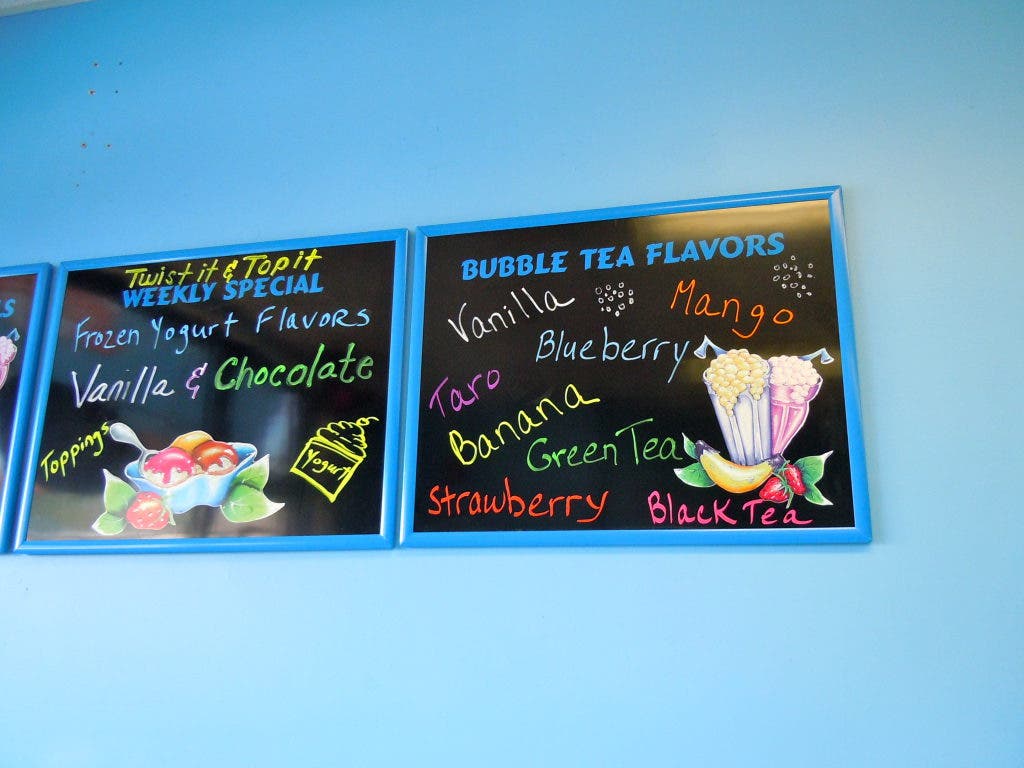 S
Twist it & Top it
WEEKLY SPECIAL
Frozen Yogurt Flavors
Vanilla & Chocolate
Toppings
Yogurt
BUBBLE TEA FLAVORS
Vanilla
Mango
Blueberry
Taro
Banana
Green Tea
Strawberry
Black Tea